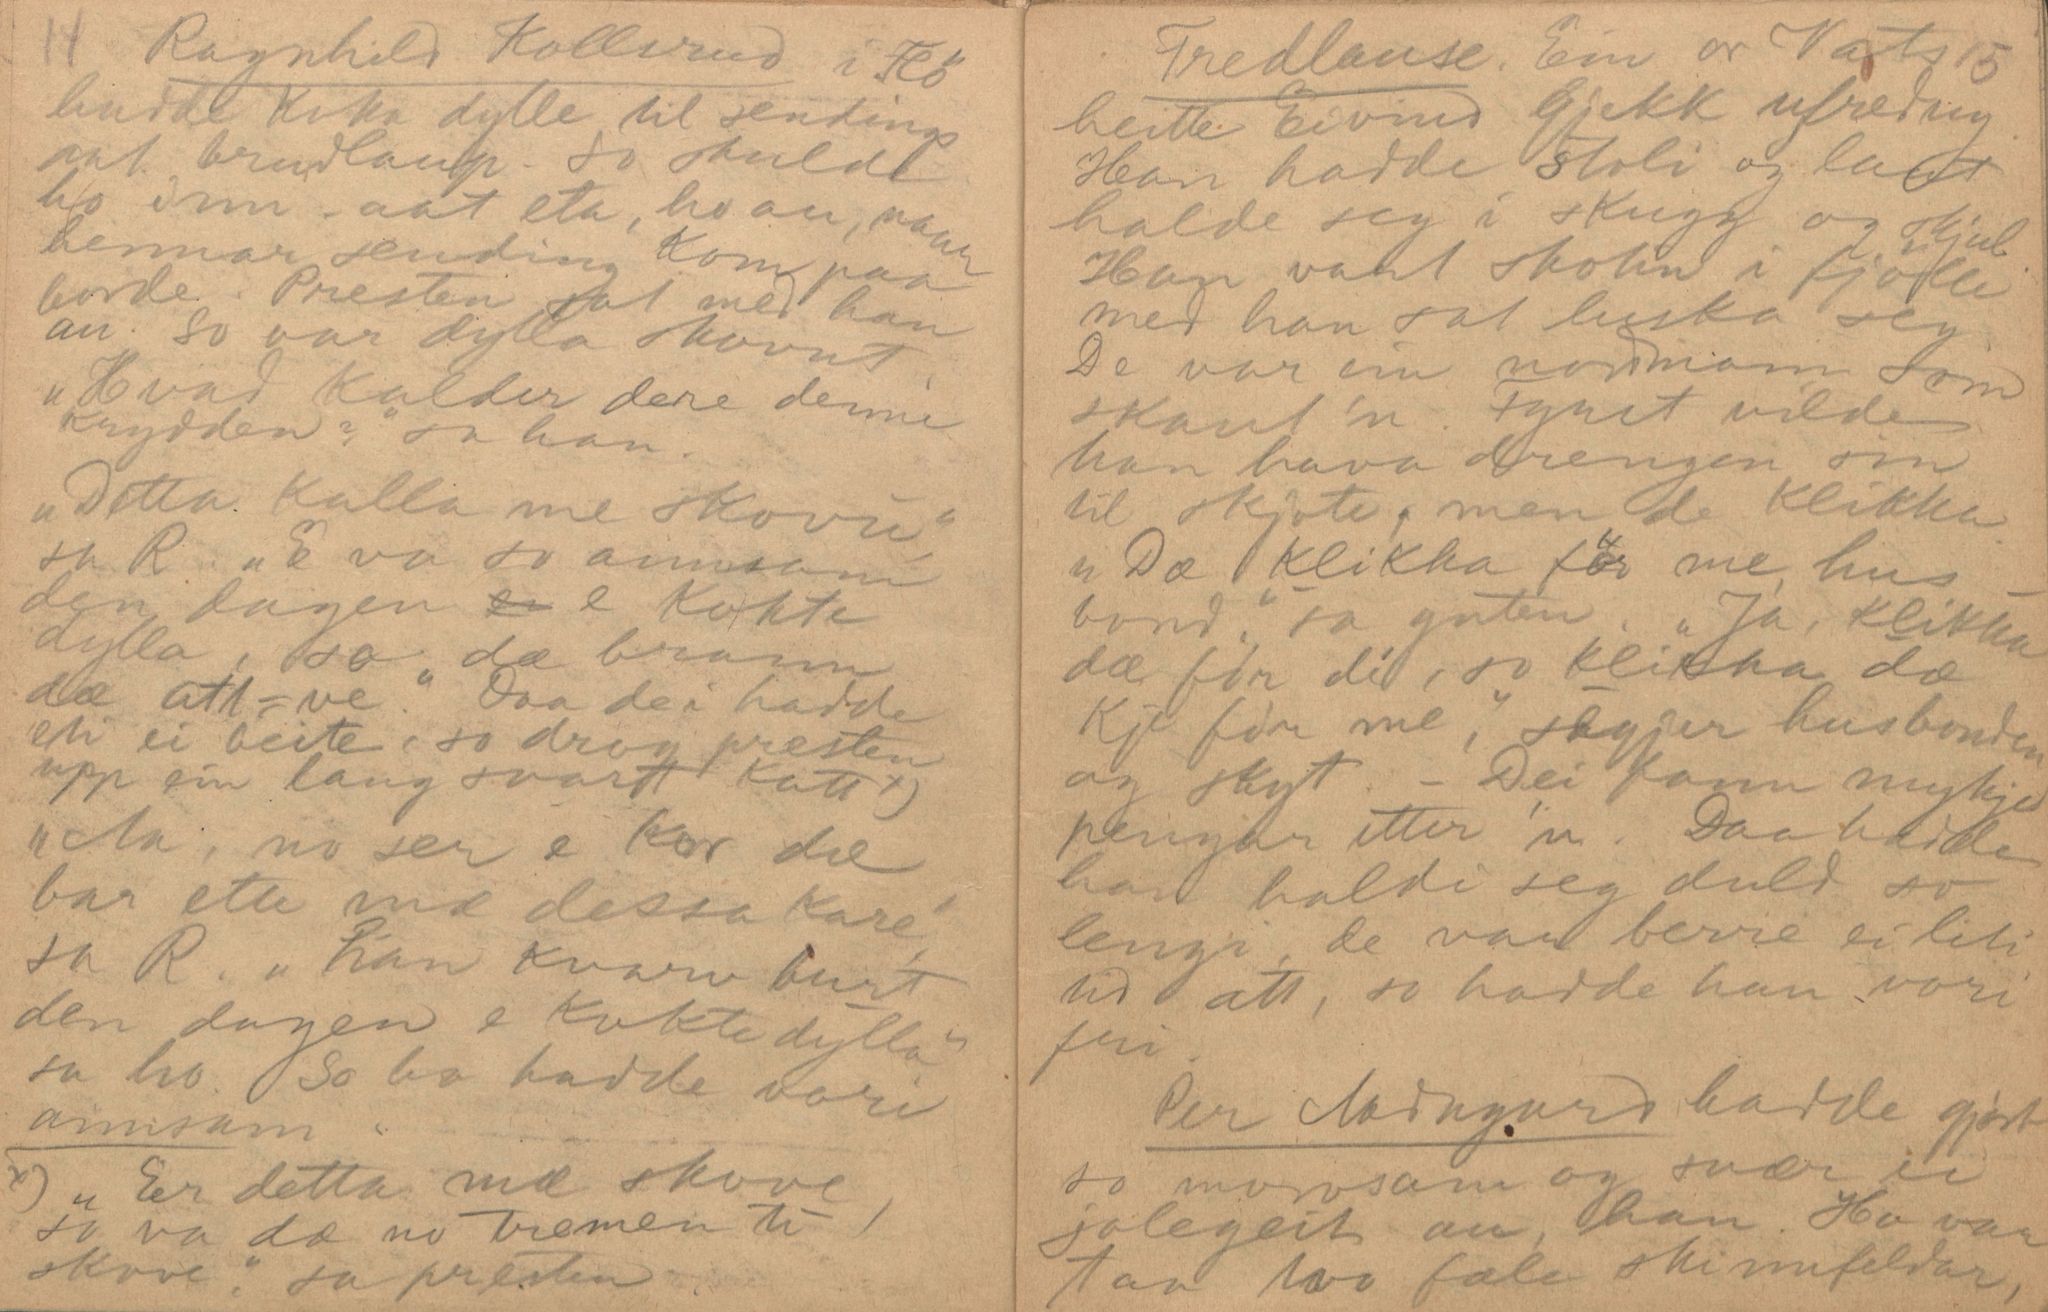 14 Ragnhild Kollsrud i Flö
hadde koka dylle til sendings
aat brudlaup. So skulde
ho inn aat eta, ho au, naar
hennar sending kom paa
borde. Presten sat med han
au. So var dylla skovut.
„Hvad kalder dere denne
krydden?" sa han.
„Detta kalla me skovu"
sa R. „E va so annsam
den dagen e kokte
dylla, so dæ brann
dæ att-ve." Daa dei hadde
eti ei beite, so drog presten
upp ein lang svart katt x)
„Aa, no ser e kor dæ
bar ette mæ dessa kare,"
sa R. „Han kvarv burt
den dagen e kokte dylla"
sa ho. So ho hadde vori
annsam.
x) „Er detta mæ skove,
so va dæ no tremen ti
skove." sa presten.
Fredlause. Ein or Vats 15
heitte Eivind Gjekk ufredug.
Han hadde stoli og laut
halde seg i skugg og skjul.
Han vart skotin i fjölle
med han sat luska seg
De var ein nordmann som
skaut 'n. Fyrst vilde
han hava drengen sin
til skjote, men de klikka.
„Dæ klikka för me, hus-
bond," sa guten. „Ja, klikka
dæ för di, so klikka dæ
kje för me," segjer husbonden
og skyt. – Dei fann mykje
pengar etter 'n. Daa hadde
han haldi seg duld so
lengi, de var berre ei liti
tid att, so hadde han vori
fri.
Per Aadngard hadde gjort
so morosam og svær ei
jolegeit au, han. Ho var
tan tvo fæle skinnfeldar,